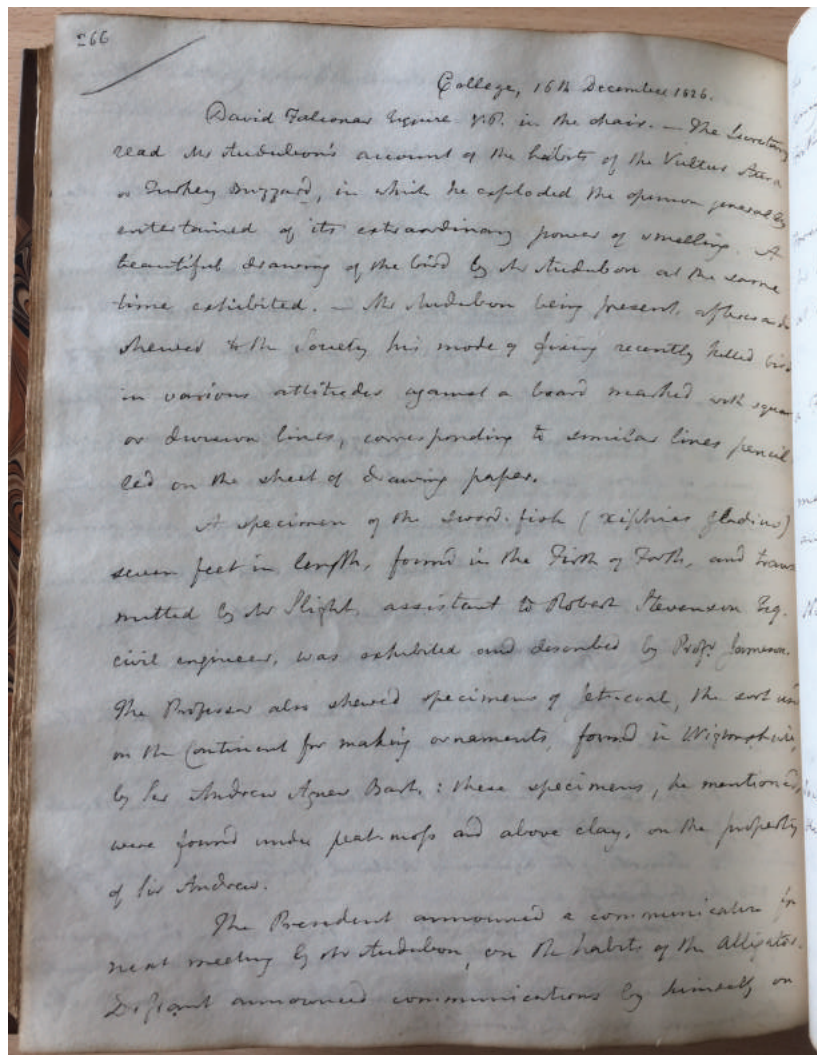 266
College, 16th December 1826.
David Falconar Esquire V.P. in the chair. — The Secretary
read Mr Audubon's account of the habits of the Vultur Aura
or Turkey Buzzard, in which he exploded the opinion generally
entertained of its extraordinary power of smelling. A
beautiful drawing of the bird by Mr Audubon at the same
time exhibited. — Mr Audubon being present, afterwards
shewed to the Society his mode of fixing recently killed bird
in various attitudes against a board marked with squar
or division lines, corresponding to similar lines pencil
led on the sheet of drawing paper.
A specimen of the sword-fish (Xiphias gladius)
seven feet in length, found in the Firth of Forth, and trans
mitted by Mr Slight, assistant to Robert Stevenson Esq.
civil engineer, was exhibited and described by Profr Jameson.
The Professor also shewed specimens of jet-coal, the sort used
on the Continent for making ornaments, found in Wigtonshire,
by Sir Andrew Agnew Bart. : these specimens, he mentioned,
were found under peat-moss and above clay, on the property
of Sir Andrew.
The President announced a communication for
next meeting by Mr Audubon, on the habits of the Alligator.
Dr Grant announced communications by himself, on